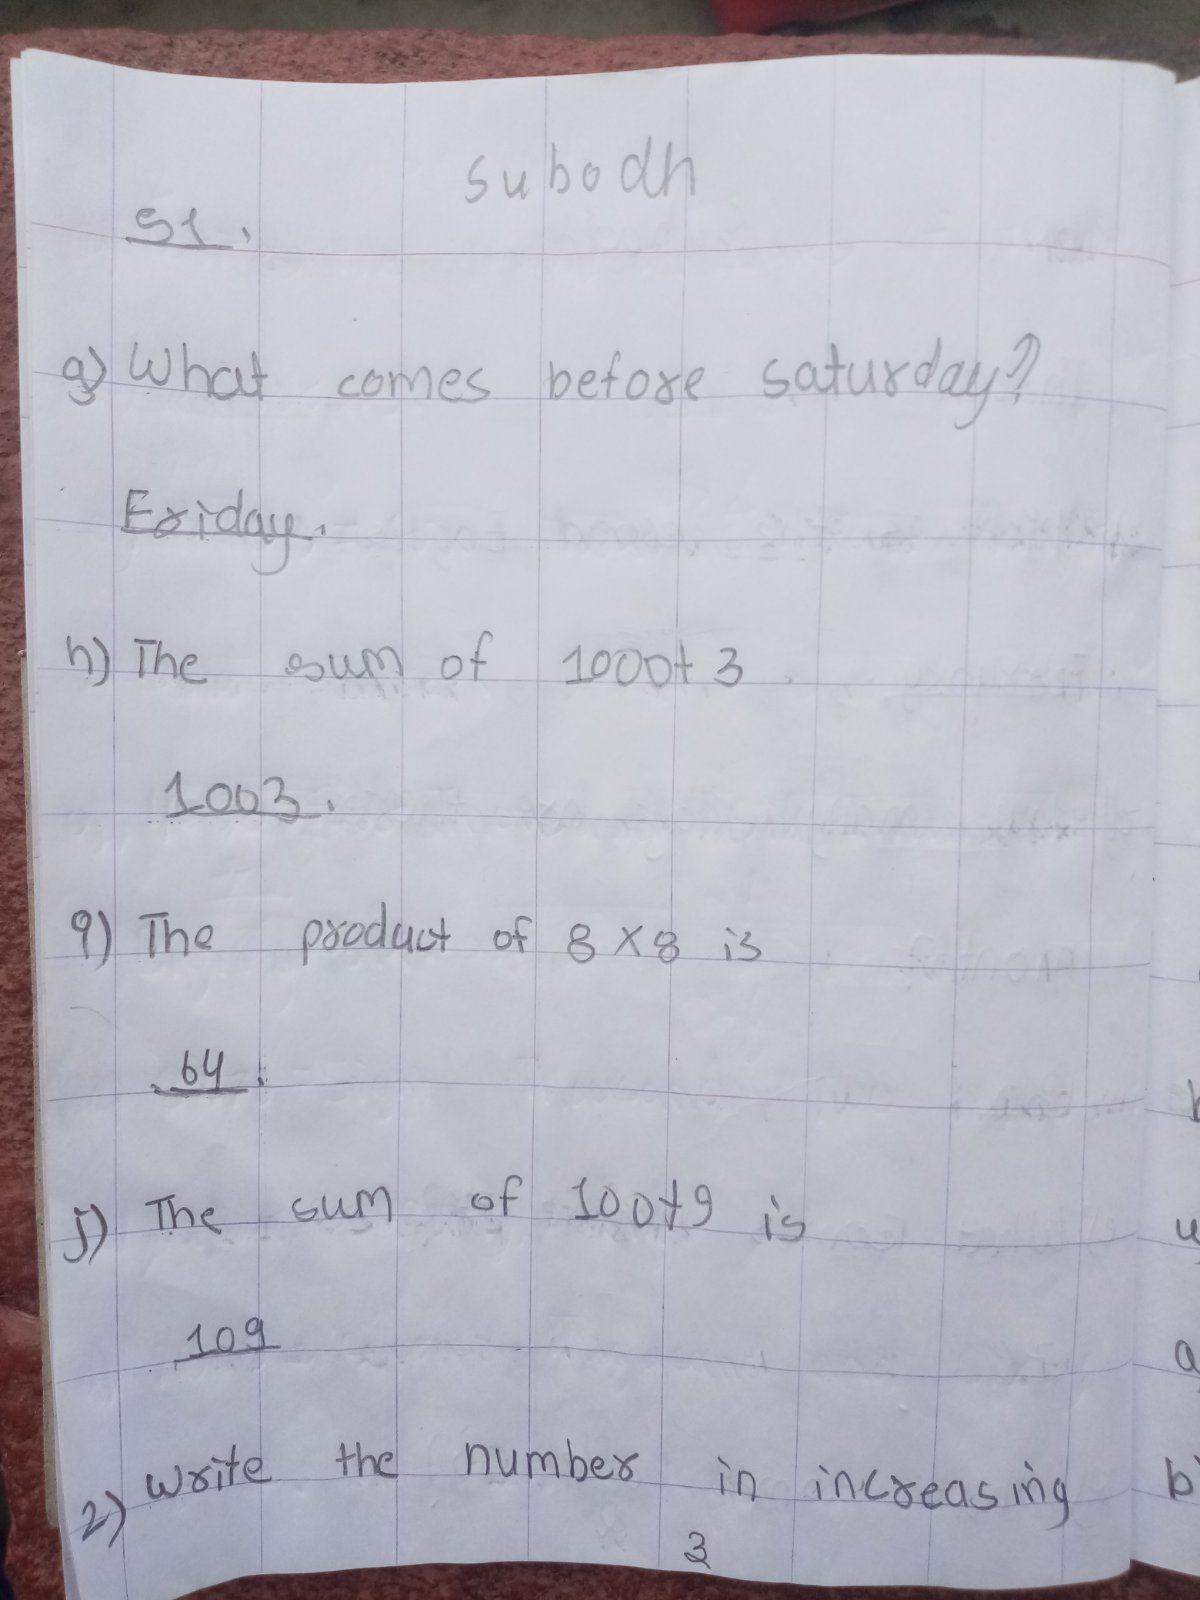 subodh
51.
g) What comes before saturday?
Friday.
h) The sum of 1000+ 3
1003.
9) The product of 8 x 8 is
64.
j) The sum of 100+9 is
109
2) Write the number in increasing
3
u
a
b